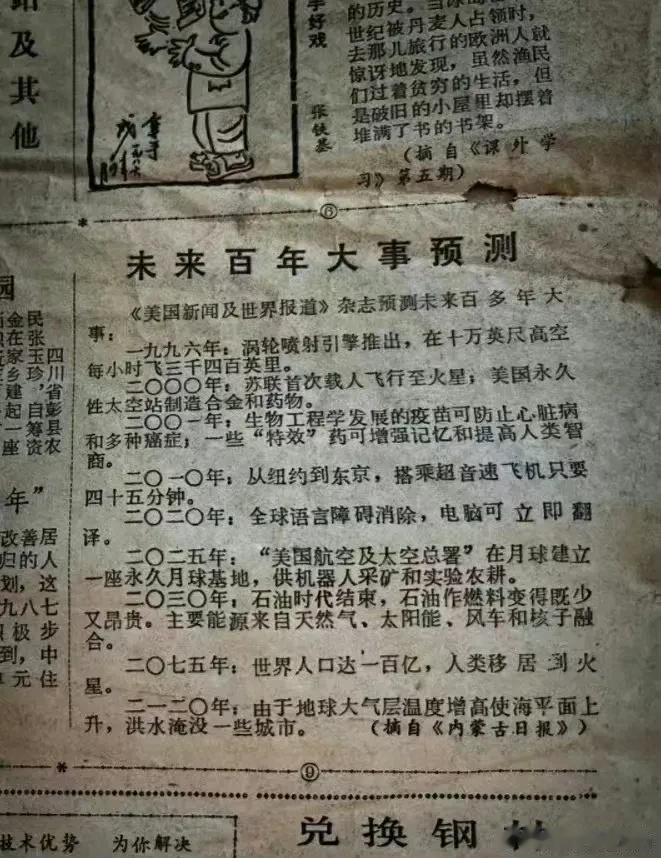 及其他
手好戏
张铁基
的历史。当冰岛在
世纪被丹麦人占领时，
去那儿旅行的欧洲人就
惊讶地发现，虽然渔民
们过着贫穷的生活，但
是破旧的小屋里却摆着
堆满了书的书架。
（摘自《课外学
习》第五期）
⑥
未来百年大事预测
《美国新闻及世界报道》杂志预测未来百多年大
事：
一九九六年：涡轮喷射引擎推出，在十万英尺高空
每小时飞三千四百英里。
二〇〇〇年：苏联首次载人飞行至火星；美国永久
性太空站制造合金和药物。
二〇〇一年：生物工程学发展的疫苗可防止心脏病
和多种癌症；一些“特效”药可增强记忆和提高人类智
商。
二〇一〇年：从纽约到东京，搭乘超音速飞机只要
四十五分钟。
二〇二〇年：全球语言障碍消除，电脑可立即翻
译。
二〇二五年：“美国航空及太空总署”在月球建立
一座永久月球基地，供机器人采矿和实验农耕。
二〇三〇年：石油时代结束，石油作燃料变得既少
又昂贵。主要能源来自天然气、太阳能、风车和核子融
合。
二〇七五年：世界人口达一百亿，人类移居到火
星。
二一二〇年：由于地球大气层温度增高使海平面上
升，洪水淹没一些城市。（摘自《内蒙古日报》）
⑨
园
四川省彭县农
民张玉珍自筹资
金在家乡建起一座
年”
改善居
归的人
划，这
九八七
积极步
到，中
单元住
技术优势 为你解决
兑换钢材